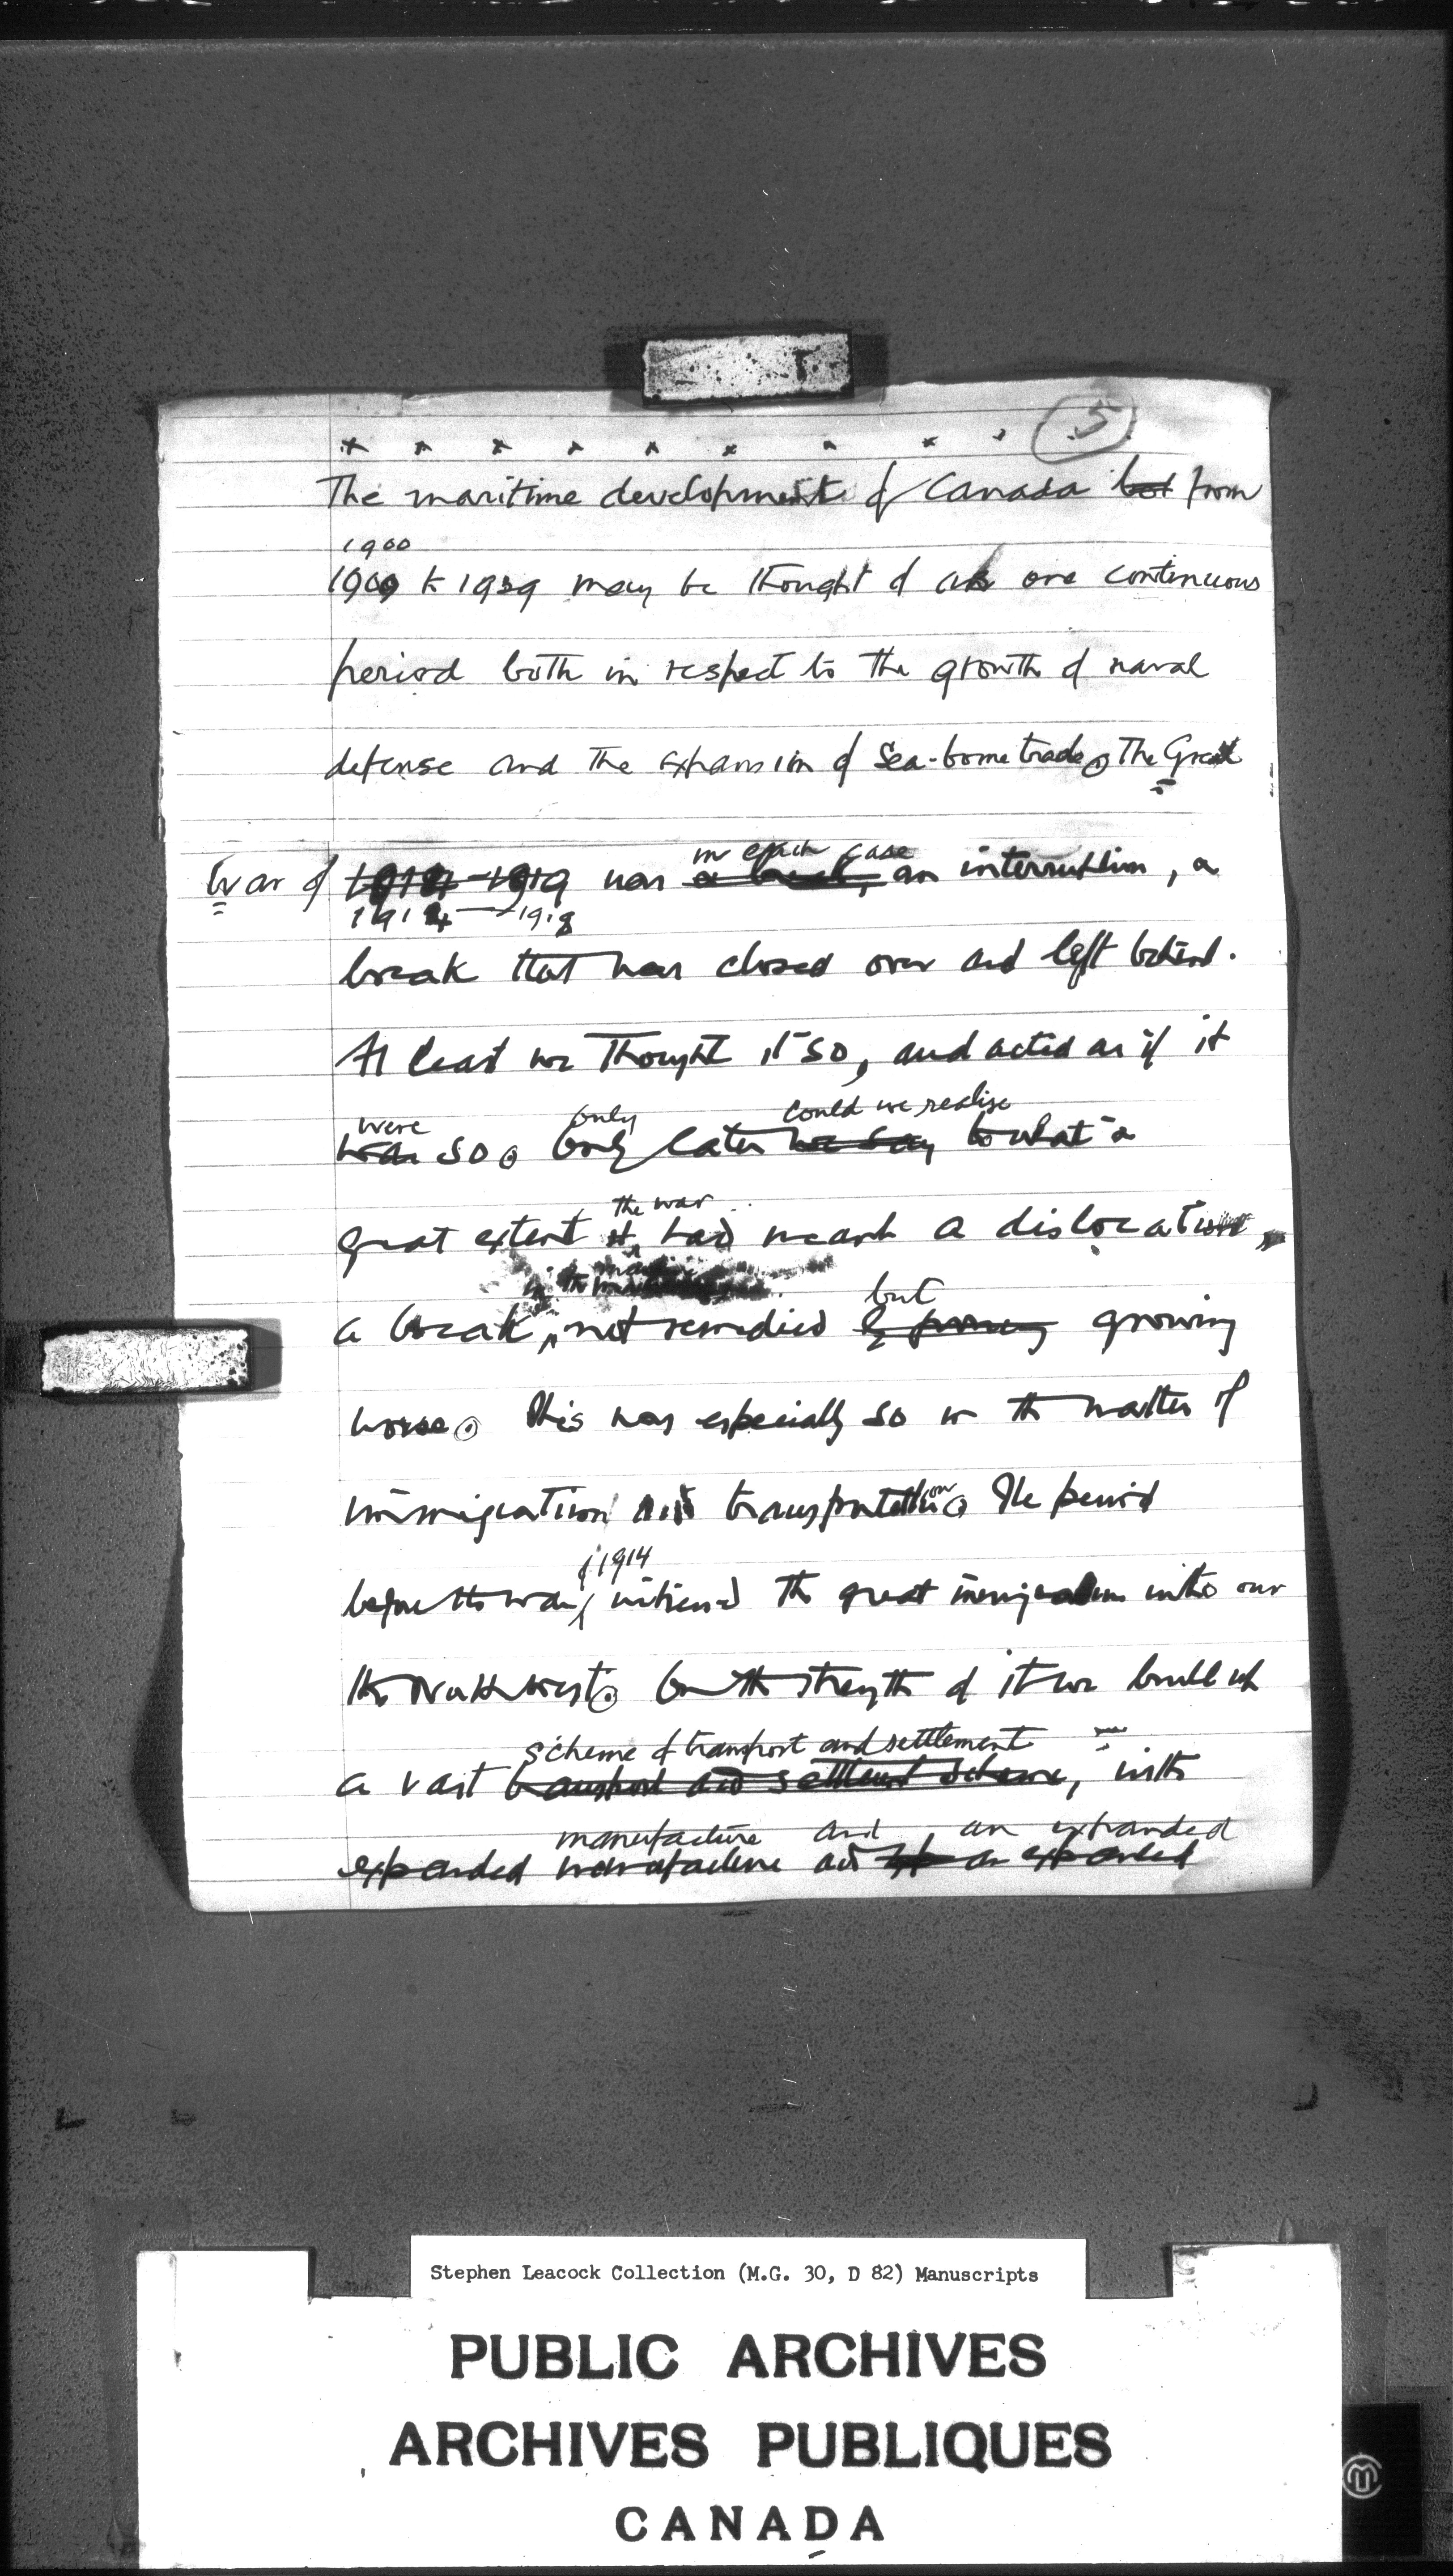 5
x x x x x x x x x
The maritime development of Canada but from
1900
1909 to 1939 may be thought of as one continuous
period both in respect to the growth of naval
defense and the expansion of sea-borne trade. The Great
in each case
War of 1914-1919 was a break, an interruption, a
1914-1918
break that was closed over and left behind.
At least we thought it so, and acted as if it
were only could we realise
was so. Only later we saw to what a
the war
great extent it had meant a dislocation,
in the
but
a break, not remedied by growing
worse. This was especially so in the matter of
immigration and transportation. The period
of 1914
before the war the great immigration into our
the North West. On the strength of it we built up
scheme of transport and settlement
a vast transport and settlement scheme, with
manufacture and, an expanded
expanded manufacture and exp an expanded
Stephen Leacock Collection (M.G. 30, D 82) Manuscripts
PUBLIC ARCHIVES
ARCHIVES PUBLIQUES
CANADA